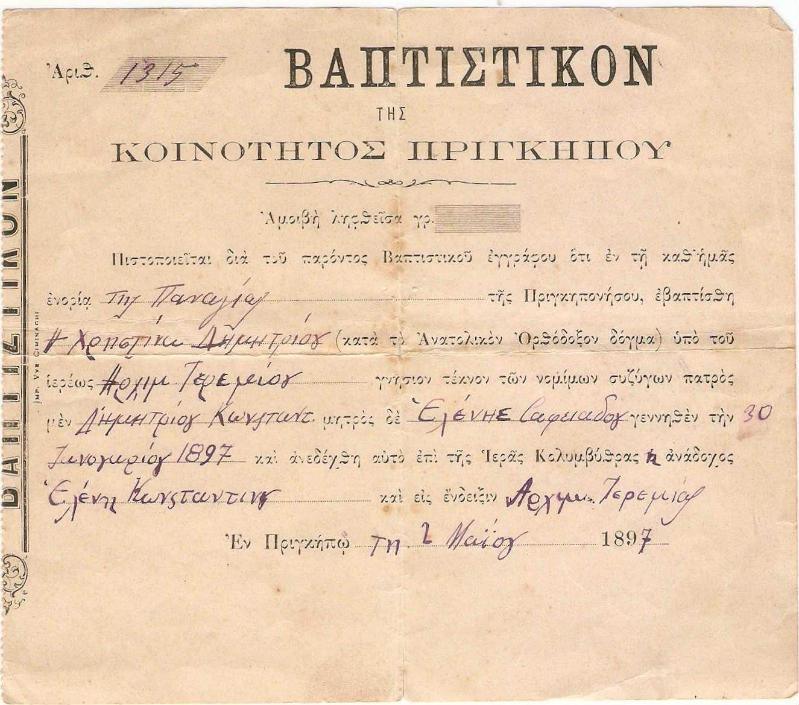 Ἀριθ. 1315
ΒΑΠΤΙΣΤΙΚΟΝ
ΤΗΣ
ΚΟΙΝΟΤΗΤΟΣ ΠΡΙΓΚΗΠΟΥ
Ἀμοιβὴ ληφθεῖσα γρ.
Πιστοποιεῖται διὰ τοῦ παρόντος Βαπτιστικοῦ ἐγγράφου ὅτι ἐν τῇ καθ' ἡμᾶς
ἐνορίᾳ της Παναγίας τῆς Πριγκηπονήσου, ἐβαπτίσθη
η Χρηστίνα Δημητρίου (κατὰ τὸ Ἀνατολικὸν Ὀρθόδοξον δόγμα) ὑπὸ τοῦ
ἱερέως Ιερεμίου γνήσιον τέκνον τῶν νομίμων συζύγων πατρὸς
μὲν Δημητρίου Κωνσταντ. μητρὸς δὲ Ἑλένης γεννηθὲν τὴν 30
Ιανουαρίου 1897 καὶ ἀνεδέχθη αὐτὸ ἐπὶ τῆς Ἱερᾶς Κολυμβύθρας η ἀνάδοχος
Ἑλένη Κωνσταντίνου καὶ εἰς ἔνδειξιν Αρχιμ. Ιερεμίας
Ἐν Πριγκήπῳ τη 2 Μαΐου 1897
ΒΑΠΤΙΣΤΙΚΟΝ